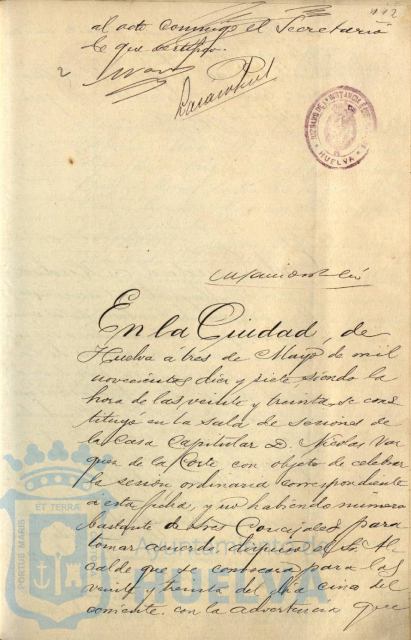 112
al acto conmigo el Secretario
de que certifico.
JUZGADO DE 1ª INSTANCIA
HUELVA
En la Ciudad, de
Huelva á tres de Mayo de mil
novecientos diez y siete siendo la
hora de las veinte y treinta, se cons
tituyó en la sala de sesiones de
la Casa Capitular D. Nicolas Vaz
quez de la Corte con objeto de celebrar
la sesión ordinaria correspondiente
a esta fecha, y no habiendo número
bastante de Sres Concejales para
tomar acuerdo dispuso el Sr. Al
calde que se convocara para las
veinte y treinta del dia cinco del
corriente con la advertencia que
PORTUS MARIS ET TERRAE
Ayuntamiento de
HUELVA